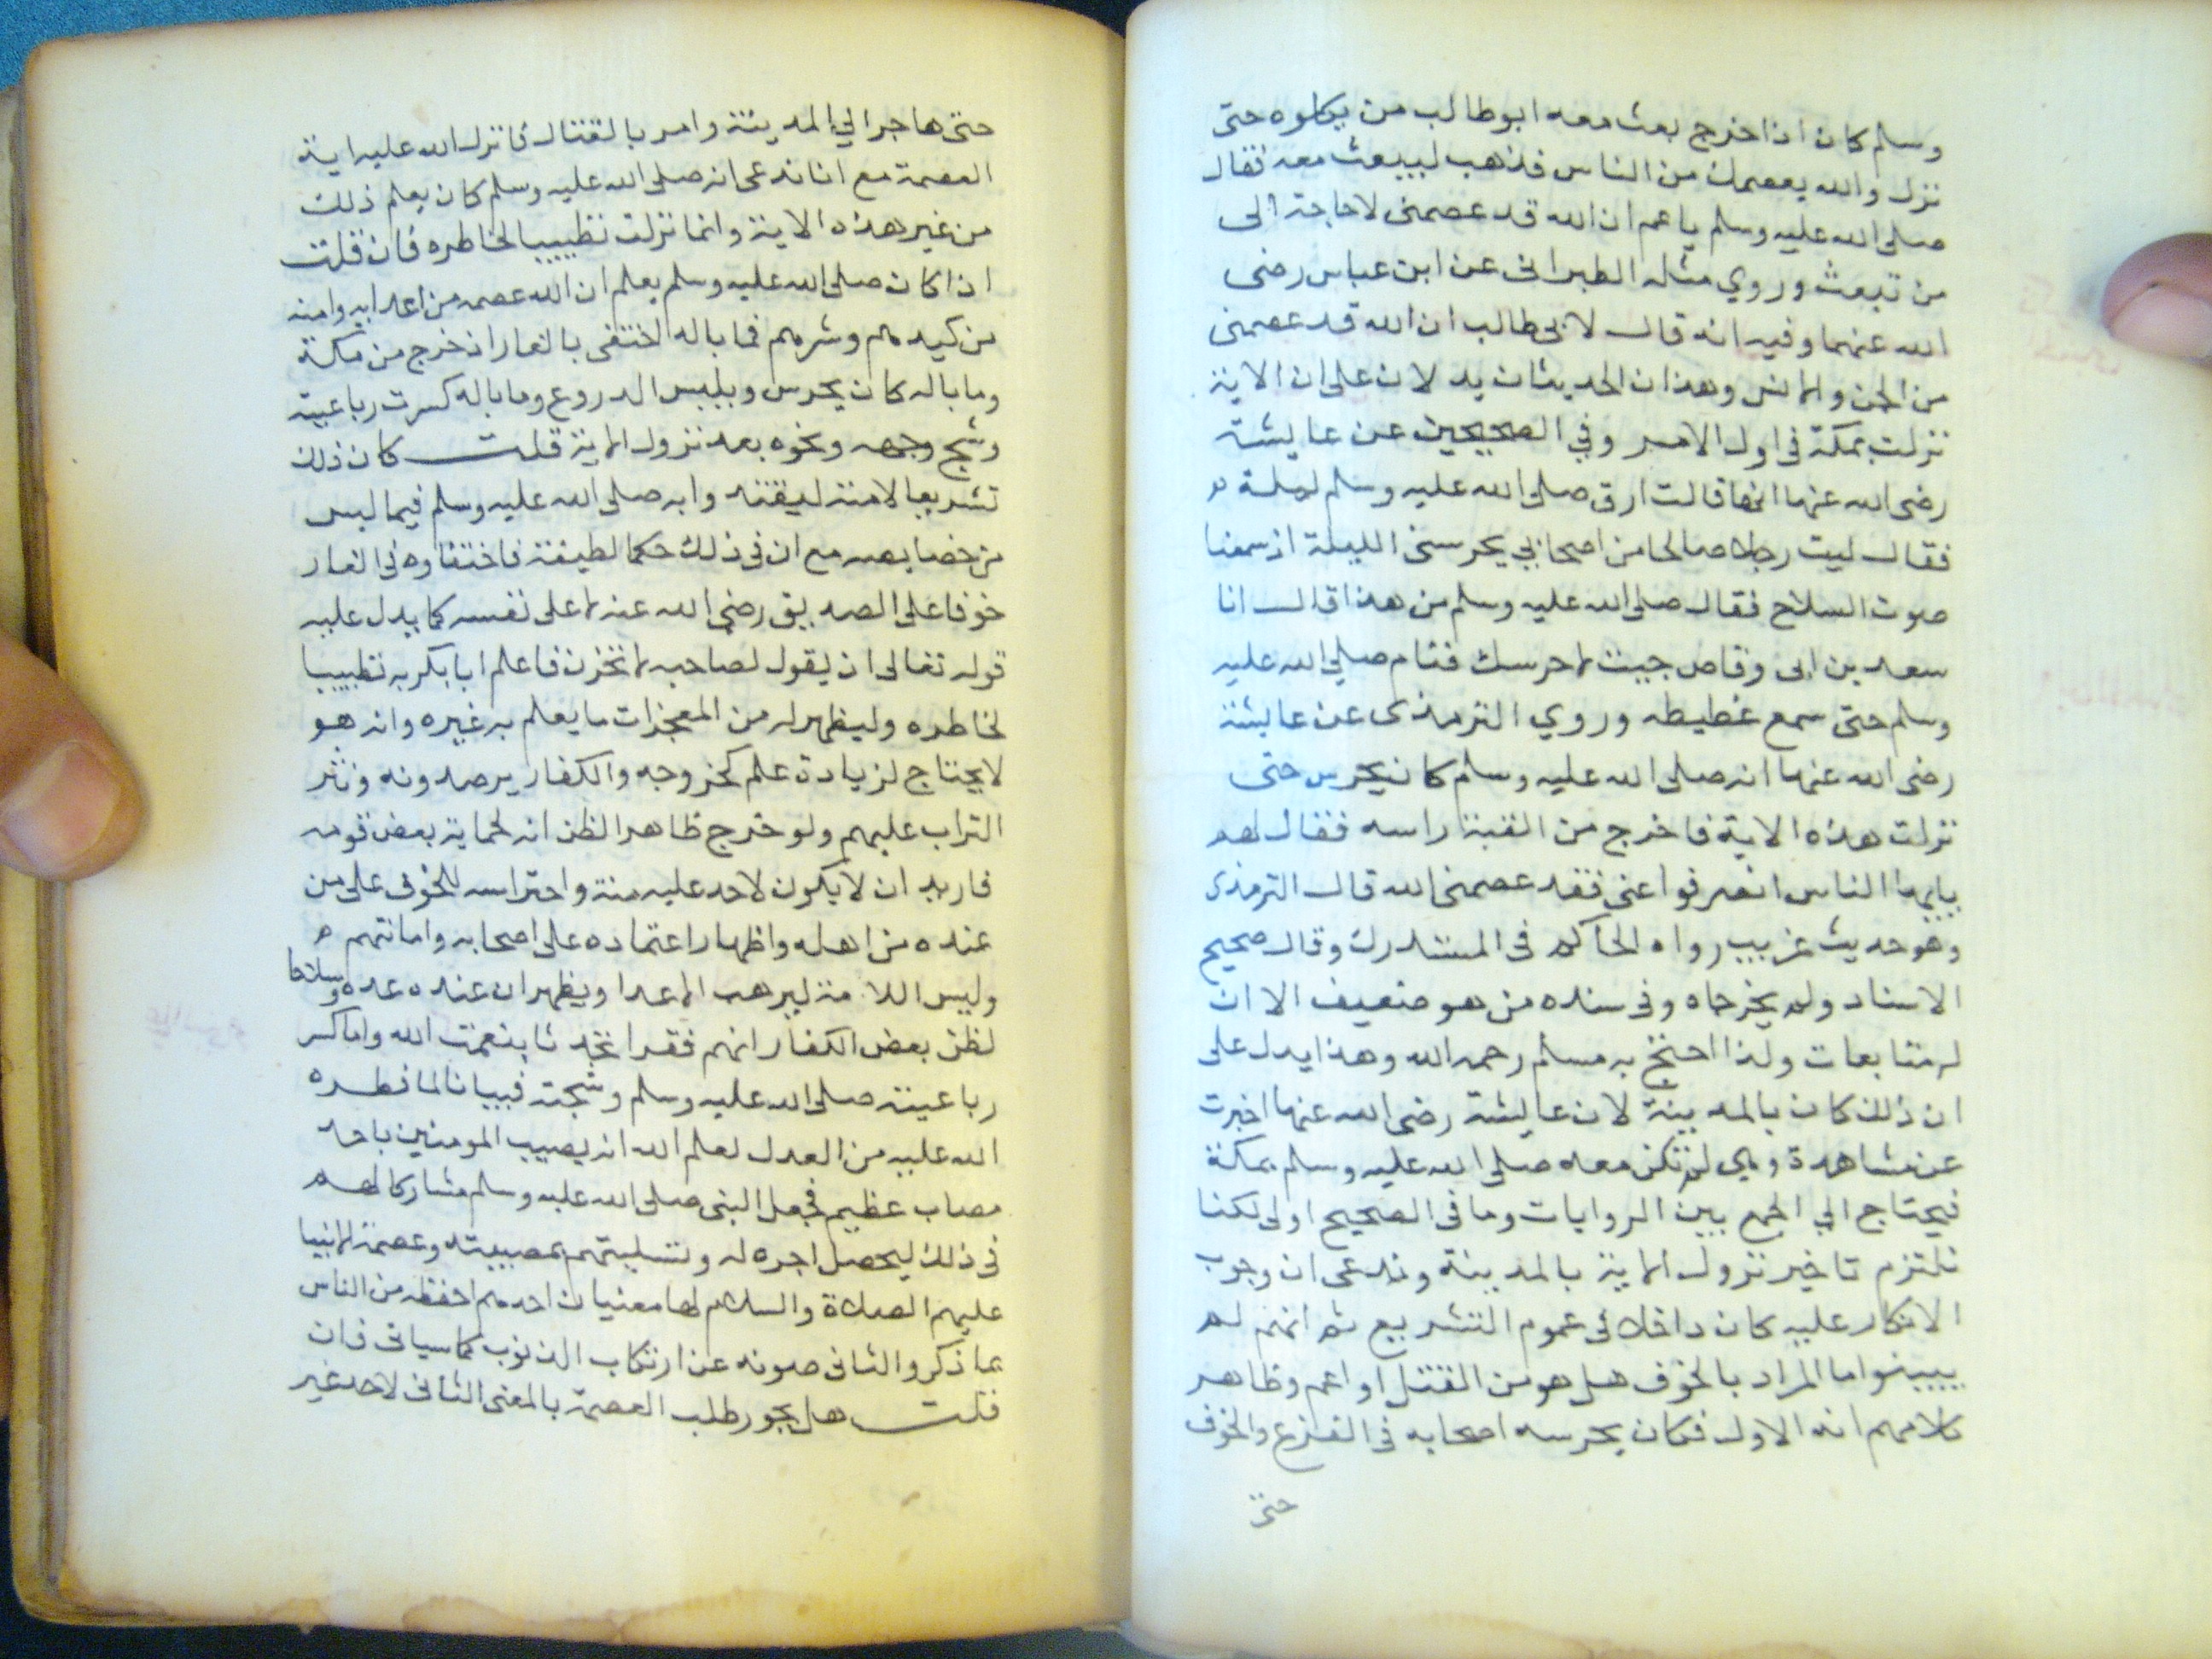 وسلم كان اذا خرج بعث معه ابوطالب من يكلوه حتى
نزل والله يعصمك من الناس فذهب ليبعث معه فقال
صلى الله عليه وسلم ياعم ان الله قد عصمنى لاحاجة الى
من تبعث وروي مثله الطبرانى عن ابن عباس رضى
الله عنهما وفيه انه قال لابى طالب ان الله قد عصمنى
من الجن والانس وهذان الحديثان يدلان على ان الاية
نزلت بمكة فى اول الامر وفي الصحيحين عن عايشة
رضى الله عنها انها قالت ارق صلى الله عليه وسلم ليلة
فقال ليت رجلا صالحا من اصحابي يحرسنى الليلة اذ سمعنا
صوت السلاح فقال صلى الله عليه وسلم من هذا قال انا
سعد بن ابى وقاص جيت لاحرسك فنام صلى الله عليه
وسلم حتى سمع غطيطه وروي الترمذى عن عايشة
رضى الله عنها انه صلى الله عليه وسلم كان يحرس حتى
نزلت هذه الاية فاخرج من القبة راسه فقال لهم
يايها الناس انصرفوا عنى فقد عصمنى الله قال الترمذى
وهو حديث غريب رواه الحاكم فى المستدرك وقال صحيح
الاسناد ولم يخرجاه وفى سنده من هو ضعيف الا ان
له متابعات ولذا احتج به مسلم رحمه الله وهذا يدل على
ان ذلك كان بالمدينة لان عايشة رضى الله عنها اخبرت
عن مشاهدة وهي لم تكن معه صلى الله عليه وسلم بمكة
فيحتاج الي الجمع بين الروايات وما فى الصحيح اولى لكنا
نلتزم تاخير نزول الاية بالمدينة وندعى ان وجوب
الانكار عليه كان داخلا فى عموم التشريع ثم انهم لم
يبينوا ما المراد بالخوف هل هو من القتل او اعم وظاهر
كلامهم انه الاول فكان يحرسه اصحابه فى الفزع والخوف
حتى
حتى هاجر الي المدينة وامر بالقتال فانزل الله عليه اية
العصمة مع انا ندعى انه صلى الله عليه وسلم كان يعلم ذلك
من غير هذه الاية وانما نزلت تطييبا لخاطره فان قلت
اذا كان صلى الله عليه وسلم يعلم ان الله عصمه من اعدايه وامنه
من كيدهم وشرهم فما باله اختفى بالغار اذ خرج من مكة
وما باله كان يحرس ويلبس الدروع وما باله كسرت رباعيته
وشج وجهه ونحوه بعد نزول الاية قلت كان ذلك
تشريعا لامته ليقتدوا به صلى الله عليه وسلم فيما ليس
من خصايصه مع ان فى ذلك حكما لطيفة فاختفاوه فى الغار
خوفا على الصديق رضى الله عنه لا على نفسه كما يدل عليه
قوله تعالى اذ يقول لصاحبه لا تحزن فاعلم ابا بكر به تطييبا
لخاطره وليظهر له من المعجزات ما يعلم به غيره وانه هو
لا يحتاج لزيادة علم كخروجه والكفار يرصدونه ونثر
التراب عليهم ولو خرج ظاهرا لظن انه لحماية بعض قومه
فاريد ان لا يكون لاحد عليه منة واحتراسه للخوف على من
عنده من اهله واظهار اعتماده على اصحابه وامانتهم
ولبس اللامة ليرهب الاعدا ويظهر ان عنده عدة وسلاحا
لظن بعض الكفار انهم فقرا تحدثا بنعمت الله واما كسر
رباعيته صلى الله عليه وسلم وشجته فبيانا لما فطره
الله عليه من العدل لعلم الله انه يصيب المومنين باحد
مصاب عظيم فجعل النبى صلى الله عليه وسلم مشاركا لهم
فى ذلك ليحصل اجره له وتسليتهم بمصيبته وعصمة الانبيا
عليهم الصلاة والسلام لها معنيان احدهم احفظه من الناس
بما ذكر والثانى صونه عن ارتكاب الذنوب كما سياتى فان
قلت هل يجوز طلب العصمة بالمعنى الثانى لاحد غير